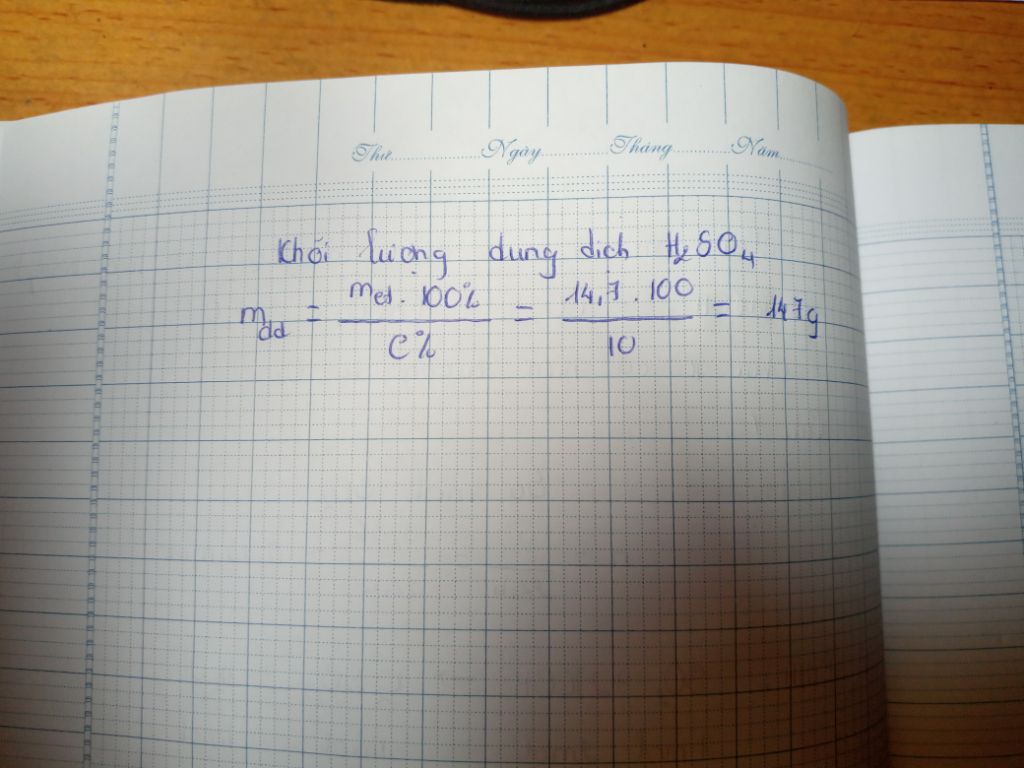 Thứ Ngày Tháng Năm
Khối lượng dung dịch H₂SO₄
m_dd = (mct . 100%) / C% = (14,7 . 100) / 10 = 147g